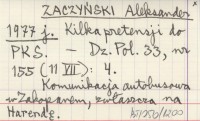 ZACZYŃSKI Aleksander
1977 r. Kilka pretensji do
PKS. – Dz. Pol. 33, nr
155 (11 VII): 4.
Komunikacja autobusowa
w Zakopanem, zwłaszcza na
Harendę.